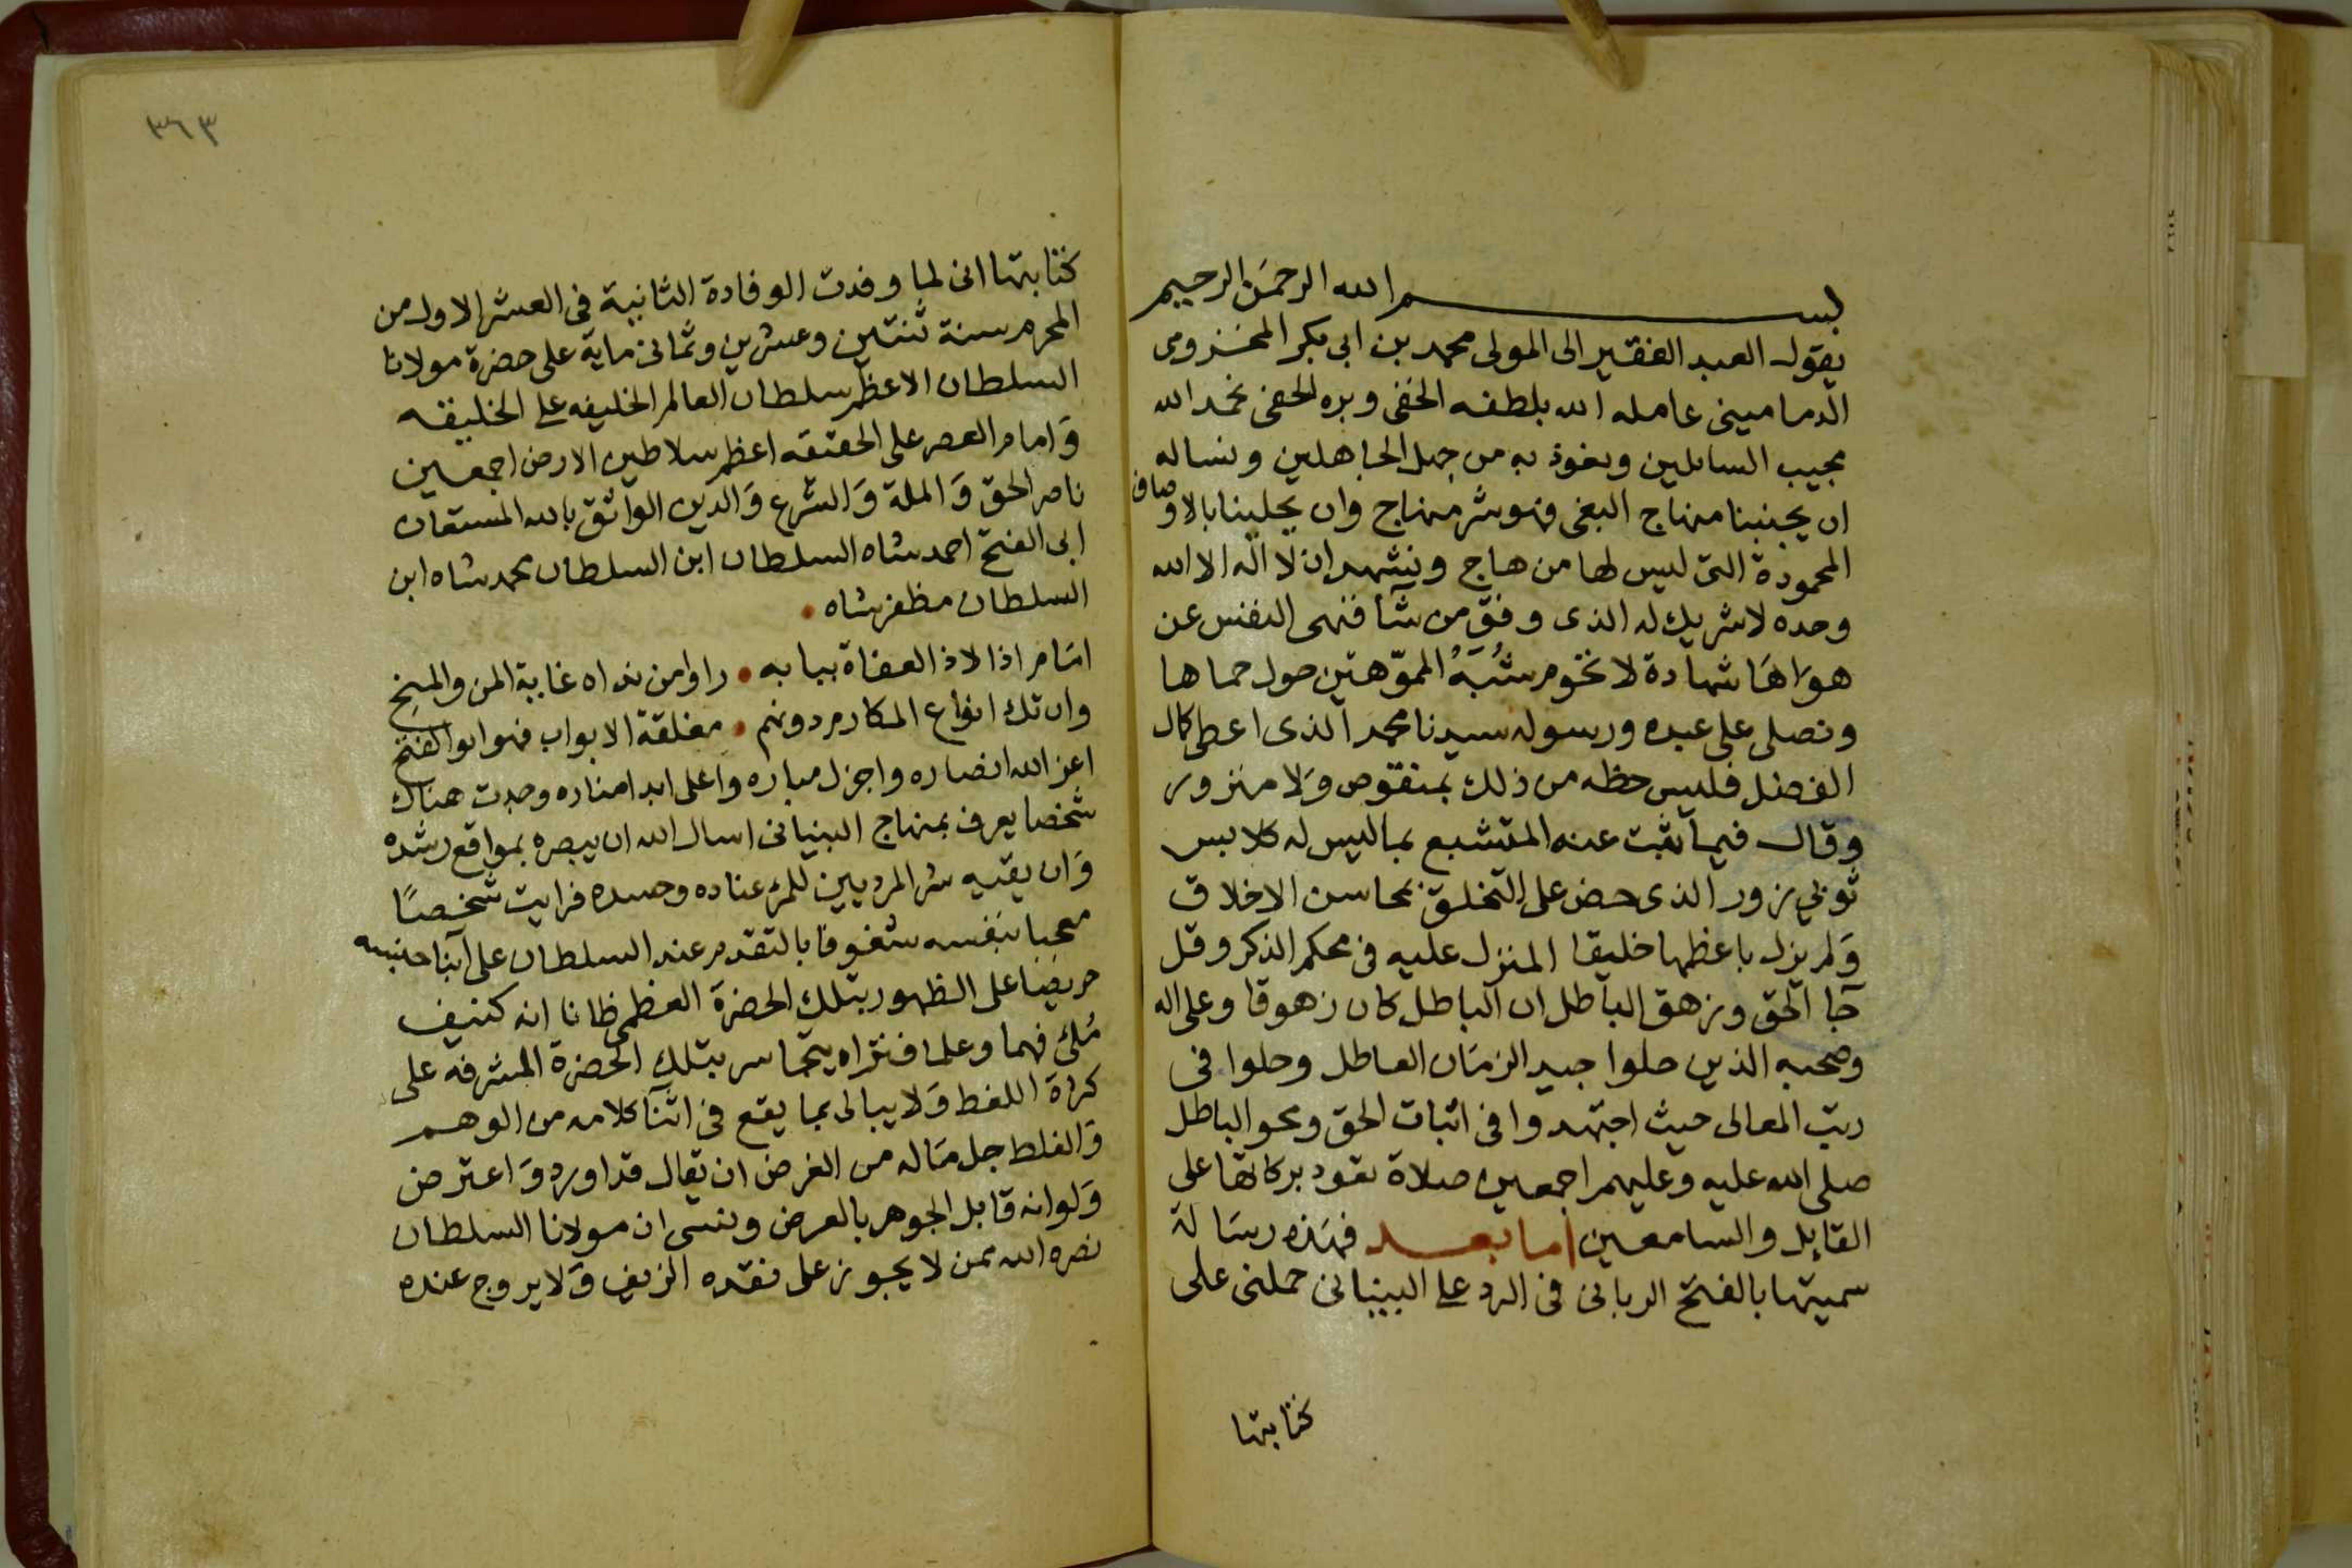 بسم الله الرحمن الرحيم
يقول العبد الفقير الى المولى محمد بن ابى بكر المخزومى
الدمامينى عامله الله بلطفه الخفى وبره الحفى نحمد الله
مجيب السايلين ونعوذ به من جهل الجاهلين ونساله
ان يجنبنا منهاج البغى فهو شر منهاج وان يحلينا بالاوصاف
المحمودة التى ليس لها من هاج ونشهد ان لا اله الا الله
وحده لا شريك له الذى وفق من شآ فنهى النفس عن
هواها شهادة لا تحوم شُبَهُ المموّهين حول حماها
ونصلى على عبده ورسوله سيدنا محمد الذى اعطى كمال
الفضل فليس حظه من ذلك بمنقوص ولا منزور
وقال فيما ثبت عنه المتشبع بما ليس له كلابس
ثوبي زور الذى حض على التخلق بمحاسن الاخلاق
وَلم يزل باعظمها خليقا المنزل عليه فى محكم الذكر وقل
جآ الحق وزهق الباطل ان الباطل كان زهوقا وعلى اله
وصحبه الذين حلوا جيد الزمَان العاطل وحلوا فى
رتب المعالى حيث اجتهدوا فى اثبات الحق ومحو الباطل
صلى الله عليه وعليهم اجمعين صلاة تعود بركاتها على
القايل والسامعين اما بعد فهذه رسَالة
سميتها بالفتح الربانى فى الرد على البنبانى حملنى على
كتابتها
٣٦٣
كتابتها انى لما وفدت الوفادة الثانية فى العشر الاول من
المحرم سنة ثنتين وعشرين وثمانى ماية على حضرة مولانا
السلطان الاعظم سلطان العالم الخليفه على الخليقه
وَامام العصر على الحقيقه اعظم سلاطين الارض اجمعين
ناصر الحق وَالملة وَالشرع وَالدين الواثق بالله المستعان
ابى الفتح احمد شاه السلطان ابن السلطان محمد شاه ابن
السلطان مظفر شاه
امَام اذا لاذ العفاة ببابه • راوا من نداه غاية المن والمنح
وان تك انواع المكارم دونهم • مغلقة الابواب فهو ابو الفتح
اعز الله انصاره واجزل مباره واعلى ابدا مناره وجدت هناك
شخصا يعرف بمنهاج البنبانى اسال الله ان يبصره بمواقع رشده
وَان يقيه شر المرديين للمرء عناده وحسده فرايت شخصًا
معجبا بنفسه شغوفا بالتقدم عند السلطان على ابنا جنسه
حريصا على الظهور بتلك الحضرة العظمى ظانا انه كنيف
مُلئ فهما وعلما فتراه يتجاسر بتلك الحضرة المشرفه على
كثرة اللغط وَلا يبالى بما يقع فى اثنآ كلامه من الوهم
وَالغلط جل مَاله من الغرض ان يقال قد اورد وَاعترض
وَلو انه قابل الجوهر بالعرض ونسى ان مولانا السلطان
نصره الله ممن لا يجوز على نقده الزيف وَلا يروج عنده